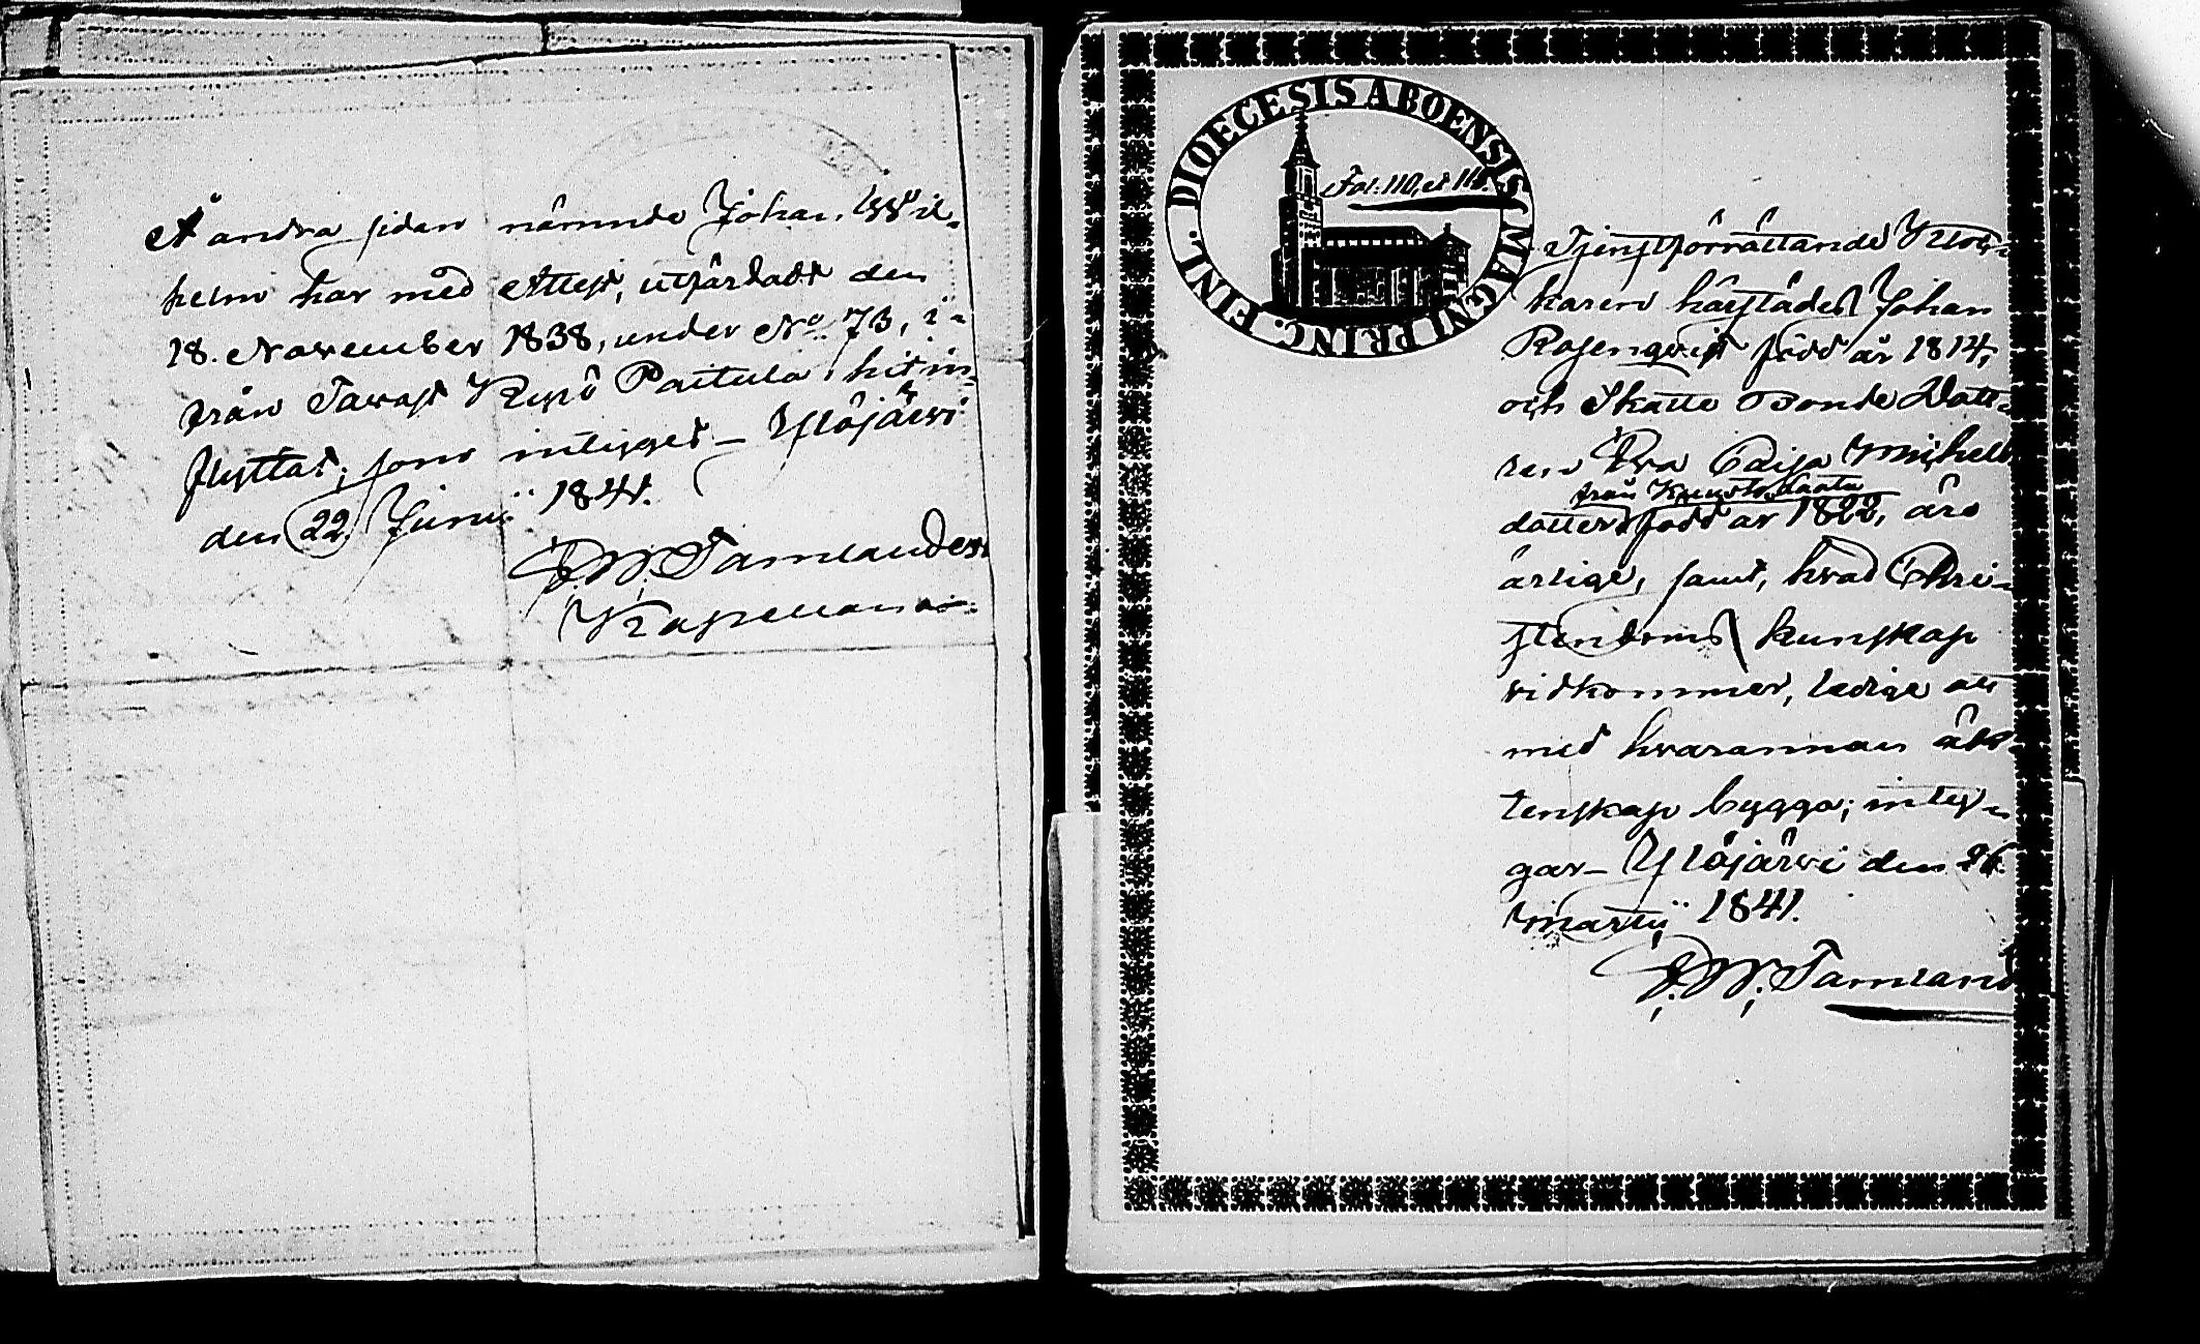 Å andra sidan nämnde Johan Wil-
helm har med Attest, utfärdadt den
18. November 1838, under No. 73, i-
från Tavast Kyrö Paitula, hit in-
flyttat; som intygas – Ylöjärvi
den 22. Junii 1841.
E. W. Tamlander
Kapellan
DIOECESIS ABOENSIS MAGNI PRINC. FINL.
Fol. 110, et 116.
Tjenstförrättande Kloc-
karen härstädes Johan
Rosenqvist född år 1814,
och Skatte Bonde Dott-
ren Eva Caisa Michels
från
dotter, född år 1822, äro
ärlige, samt, hvad Chri-
stendoms kunskap
vidkommer, ledige att
med hvarannan äk-
tenskap bygga; inty-
gar – Ylöjärvi den 26.
Martii 1841.
E. W. Tamland